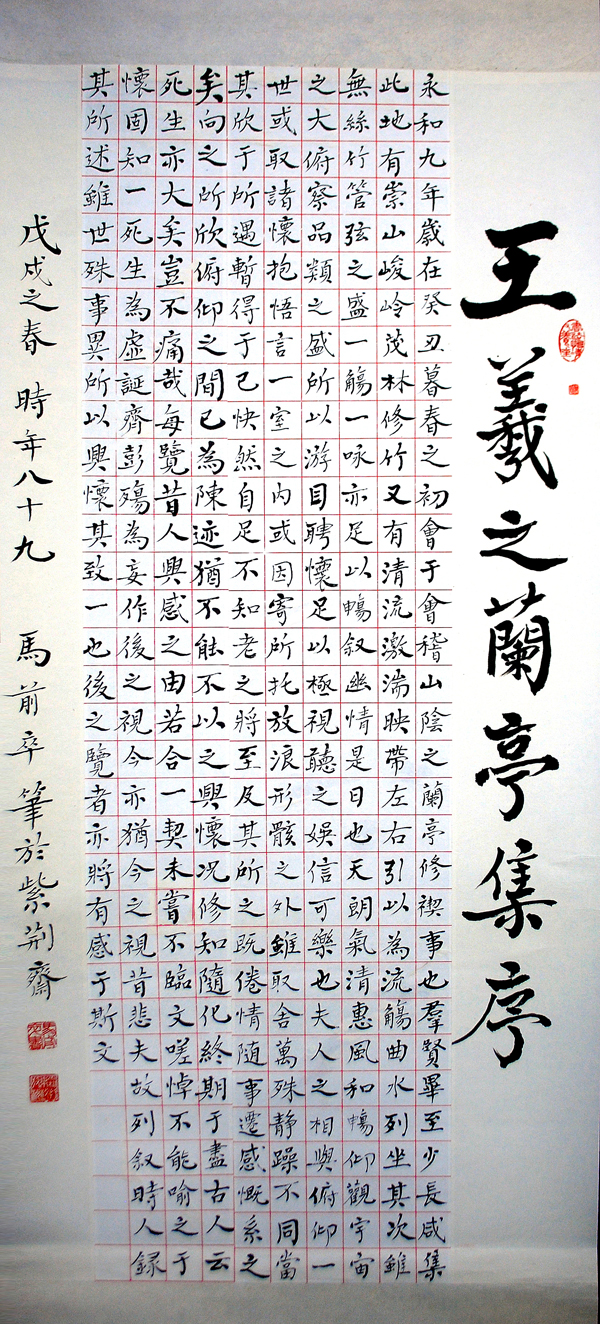 王羲之蘭亭集序
永和九年歲在癸丑暮春之初會于會稽山陰之蘭亭修禊事也羣賢畢至少長咸集
此地有崇山峻岭茂林修竹又有清流激湍映帶左右引以為流觴曲水列坐其次雖
無絲竹管弦之盛一觴一咏亦足以暢叙幽情是日也天朗氣清惠風和暢仰觀宇宙
之大俯察品類之盛所以游目聘懷足以極視聽之娛信可樂也夫人之相與俯仰一
世或取諸懷抱悟言一室之內或因寄所托放浪形骸之外雖取舍萬殊静躁不同當
其欣于所遇暫得于己快然自足不知老之將至及其所之既倦情随事遷感慨系之
矣向之所欣俯仰之間已為陳迹猶不能不以之興懷况修知隨化終期于盡古人云
死生亦大矣豈不痛哉每覽昔人興感之由若合一契未嘗不臨文嗟悼不能喻之于
懷固知一死生為虛誕齊彭殤為妄作後之視今亦猶今之視昔悲夫故列叙時人録
其所述雖世殊事異所以興懷其致一也後之覽者亦將有感于斯文
戊戌之春 時年八十九 馬前卒筆於紫荆齋